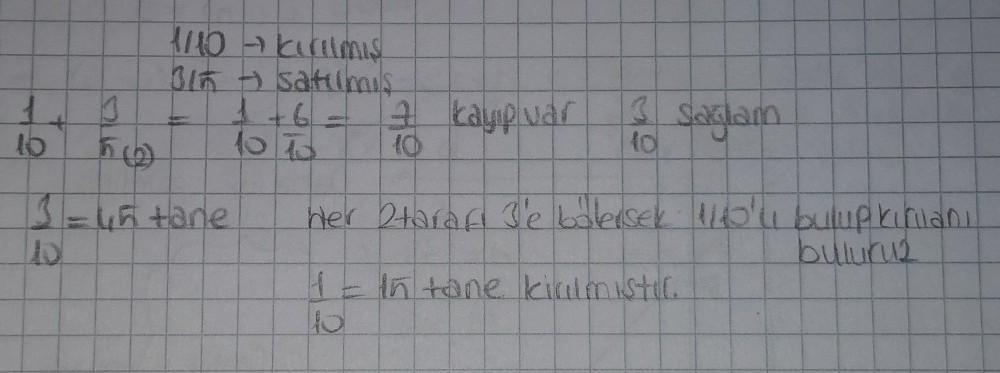 1/10 → kırılmış
3/5 → satılmış
1/10 + 3/5(2) = 1/10 + 6/10 = 7/10 kayıp var 3/10 sağlam
3/10 = 45 tane Her 2 tarafı 3'e bölersek 1/10'u bulup kırılanı
buluruz
1/10 = 15 tane kırılmıştır.